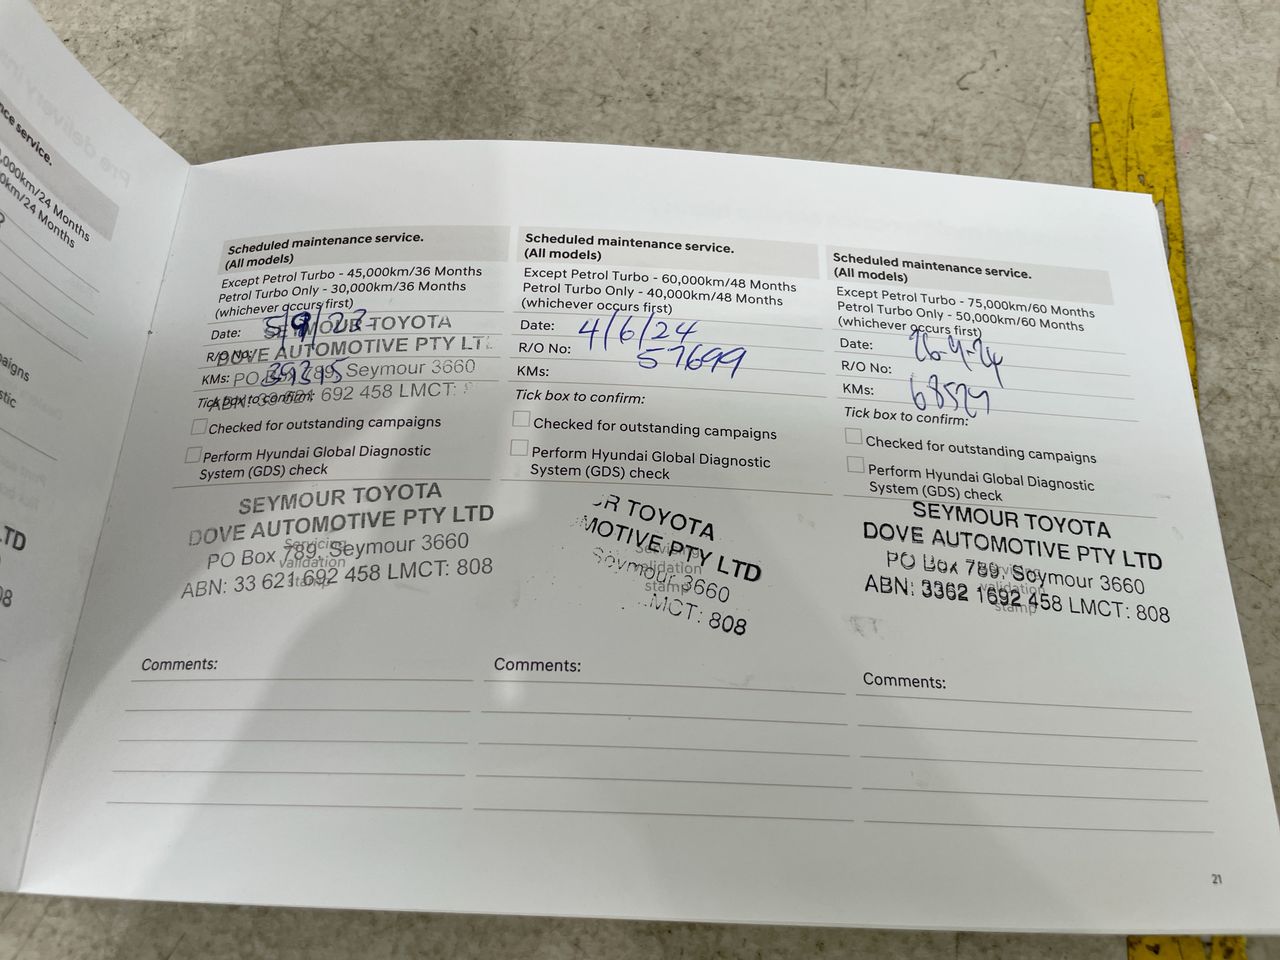 nce service.
,000km/24 Months
0km/24 Months
aigns
stic
LTD
08
Scheduled maintenance service.
(All models)
Except Petrol Turbo - 45,000km/36 Months
Petrol Turbo Only - 30,000km/36 Months
(whichever occurs first)
Date: 5/9/23
SEYMOUR TOYOTA
R/O No:
DOVE AUTOMOTIVE PTY LT
KMs: 39315
PO Box 789, Seymour 3660
Tick box to confirm:
ABN: 33 621 692 458 LMCT:
Checked for outstanding campaigns
Perform Hyundai Global Diagnostic
System (GDS) check
SEYMOUR TOYOTA
DOVE AUTOMOTIVE PTY LTD
PO Box 789, Seymour 3660
ABN: 33 621 692 458 LMCT: 808
Servicing
validation
stamp
Comments:
Scheduled maintenance service.
(All models)
Except Petrol Turbo - 60,000km/48 Months
Petrol Turbo Only - 40,000km/48 Months
(whichever occurs first)
Date: 4/6/24
R/O No: 57699
KMs:
Tick box to confirm:
Checked for outstanding campaigns
Perform Hyundai Global Diagnostic
System (GDS) check
UR TOYOTA
MOTIVE PTY LTD
Seymour 3660
MCT: 808
Servicing
validation
stamp
Comments:
Scheduled maintenance service.
(All models)
Except Petrol Turbo - 75,000km/60 Months
Petrol Turbo Only - 50,000km/60 Months
(whichever occurs first)
Date: 26-9-24
R/O No:
KMs: 68529
Tick box to confirm:
Checked for outstanding campaigns
Perform Hyundai Global Diagnostic
System (GDS) check
SEYMOUR TOYOTA
DOVE AUTOMOTIVE PTY LTD
PO Box 789, Seymour 3660
ABN: 3362 1692 458 LMCT: 808
Servicing
validation
stamp
Comments:
21